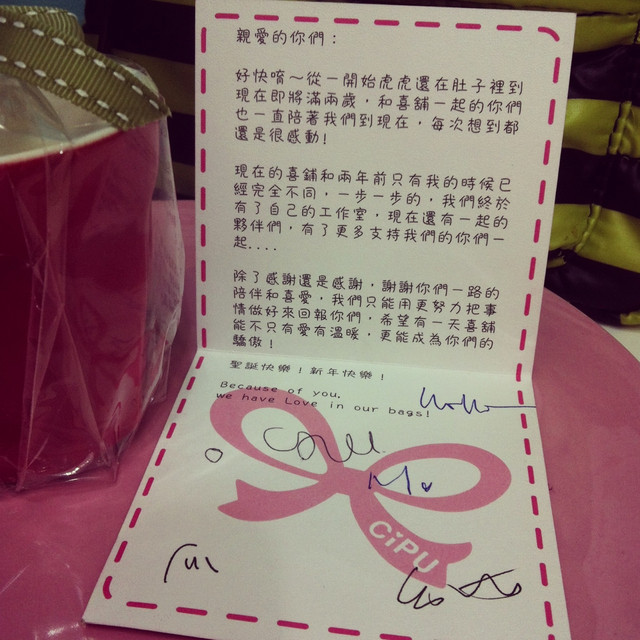 親愛的你們：
好快唷～從一開始虎虎還在肚子裡到
現在即將滿兩歲，和喜舖一起的你們
也一直陪著我們到現在，每次想到都
還是很感動!
現在的喜舖和兩年前只有我的時候已
經完全不同，一步一步的，我們終於
有了自己的工作室，現在還有一起的
夥伴們，有了更多支持我們的你們一
起....
除了感謝還是感謝，謝謝你們一路的
陪伴和喜愛，我們只能用更努力把事
情做好來回報你們，希望有一天喜舖
能不只有愛有溫暖，更能成為你們的
驕傲!
聖誕快樂！新年快樂！
Because of you,
we have Love in our bags!
CiPU